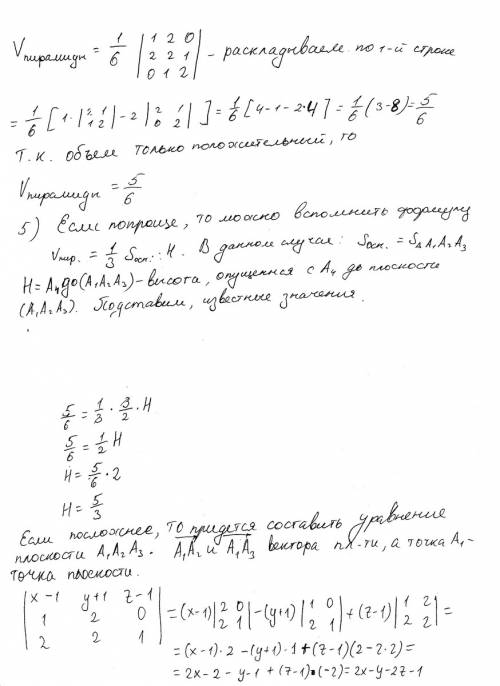 Vпирамиды = 1/6 |1 2 0; 2 2 1; 0 1 2| - раскладываем по 1-й строке
= 1/6 [1·|2 1; 1 2| - 2|2 1; 0 2|] = 1/6 [4-1-2·4] = 1/6 (3-8) = 5/6
Т.к. объем только положительный, то
Vпирамиды = 5/6
5) Если попроще, то можно вспомнить формулу
Vпир. = 1/3 Sосн. · H. В данном случае: Sосн. = SΔA₁A₂A₃
H = A₄ до (A₁A₂A₃) - высота, опущенная с A₄ до плоскости
(A₁A₂A₃). Подставим, известные значения.
5/6 = 1/3 · 3/2 · H
5/6 = 1/2 H
H = 5/6 · 2
H = 5/3
Если посложнее, то придется составить уравнение
плоскости A₁A₂A₃. A₁A₂ и A₁A₃ вектора пл-ти, а точка A₁-
точка плоскости.
|x-1 y+1 z-1; 1 2 0; 2 2 1| = (x-1)|2 0; 2 1| - (y+1)|1 0; 2 1| + (z-1)|1 2; 2 2| =
= (x-1)·2 - (y+1)·1 + (z-1)(2-2·2) =
= 2x-2-y-1 + (z-1)·(-2) = 2x-y-2z-1